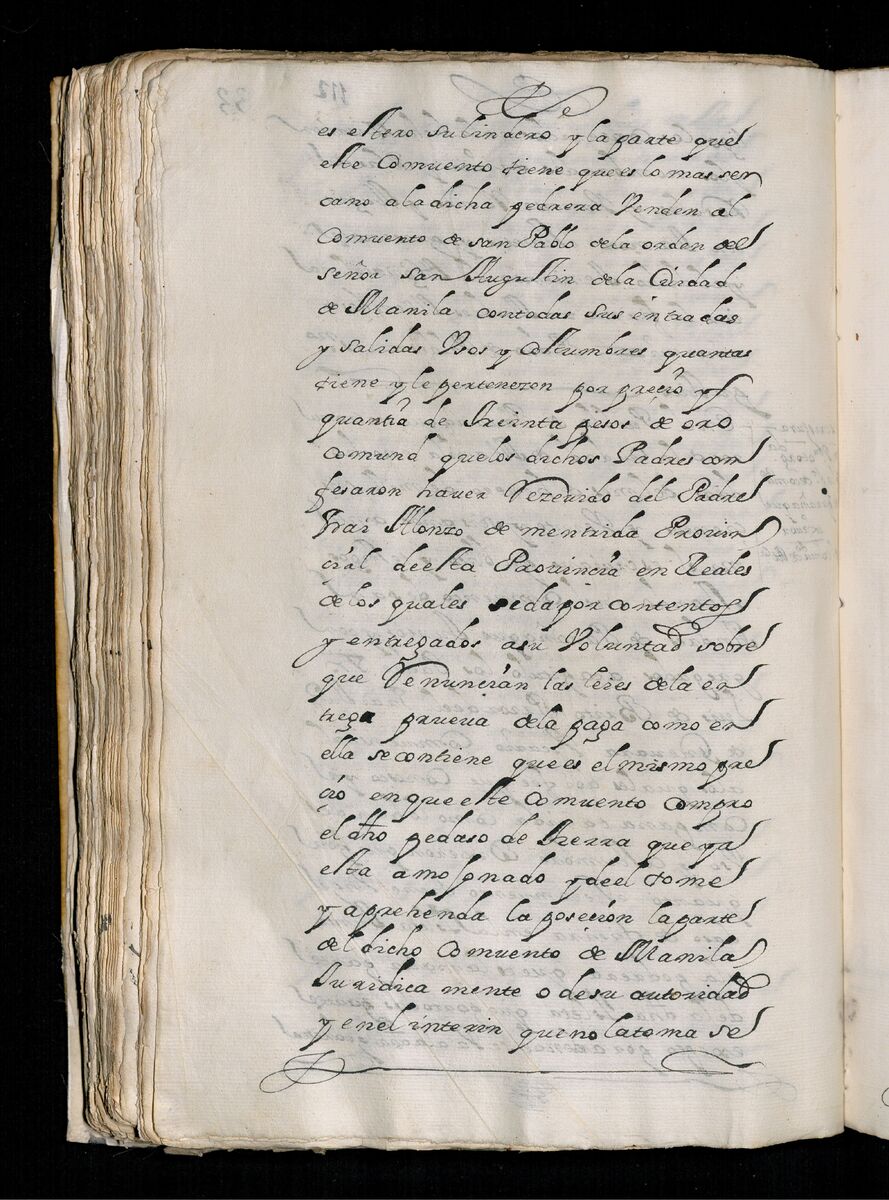 es estero su lindero y la parte que
este Comvento tiene que es lo mas ser
cano a la dicha pedrera Venden al
Comvento de san Pablo de la orden del
señor san Augustin de la Ciudad
de Manila con todas sus entradas
y salidas Vsos y Costumbres quantas
tiene y le pertenezen por precio y
quantia de treinta pesos de oro
comund que los dichos Padres con
fesaron haver Rezevido del Padre
frai Alonzo de mentrida Provin
cial de esta Provincia en Reales
de los quales se da por contentos
y entregados a su Voluntad sobre
que Renuncian las leies de la en
trega prueva de la paga como en
ella se contiene que es el mismo pre
cio en que este Comvento compro
el dho pedaso de tierra que ya
esta amojonado y de el tome
y aprehenda la posecion la parte
del dicho Comvento de Manila
Juridica mente o de su autoridad
y en el interin que no la toma se